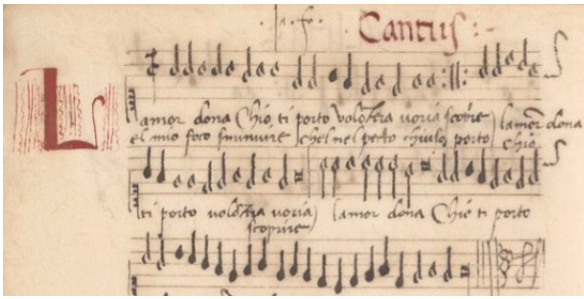 · Ja · fo ·
Cantus :-
L
amor dona Ch'io, ti porto volõtera voria scop̃ire) lamor dona
el mio foco sminuire | chel nel petto chiuso porto Chio
ti porto volõtra voria) lamor dona Ch'io ti porto
scoprire)